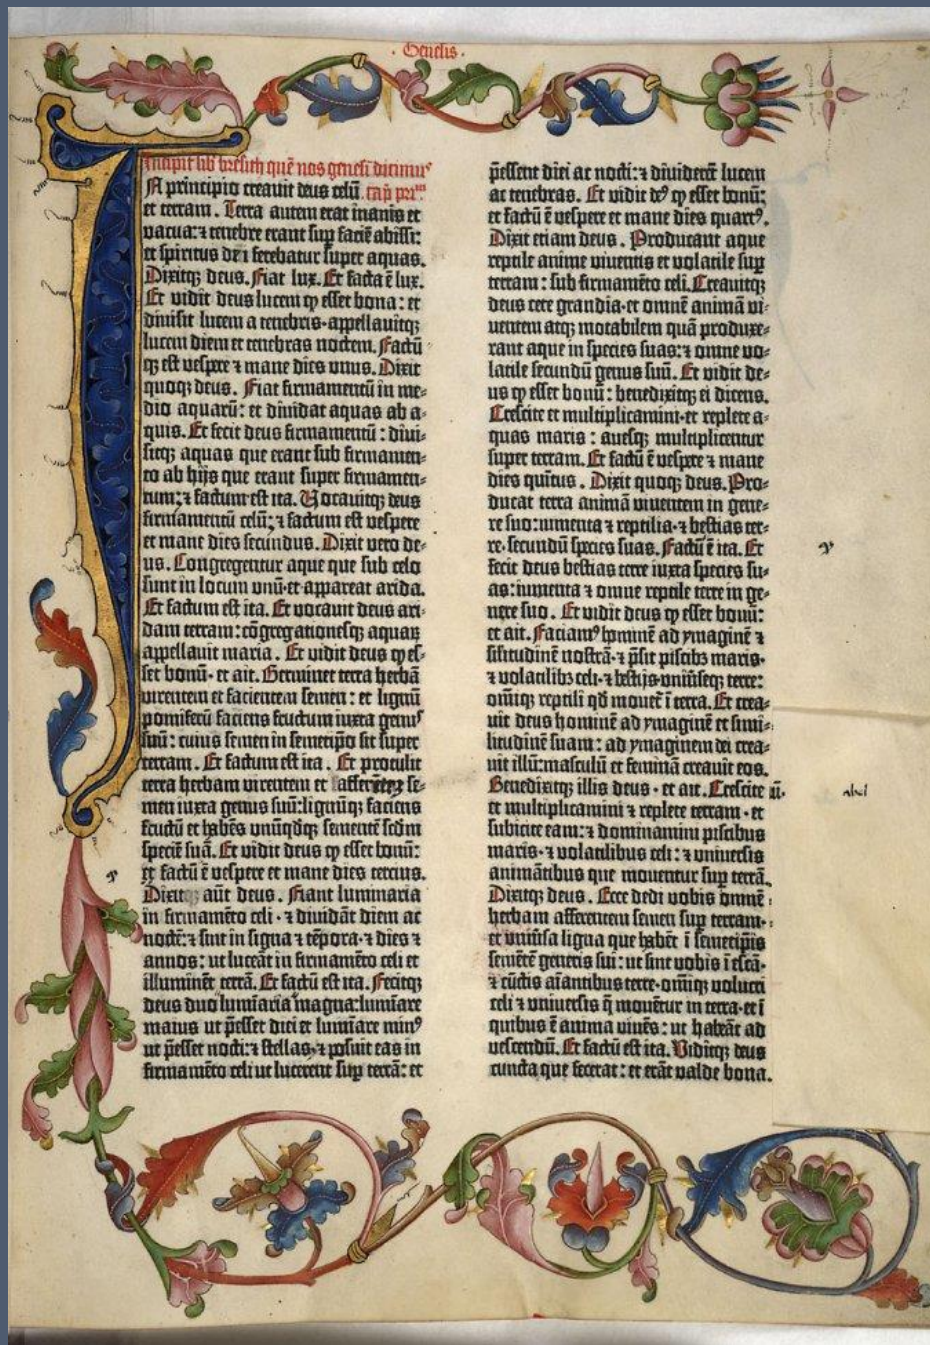 · Genesis ·
Incipit lib̄ bresith quē nos genesi dicimꝰ
IN principio creauit deus celū cap̄ pri̅m̅
et terram. Terra autem erat inanis et
vacua: ⁊ tenebre erant sup̄ faciē abissi:
et spiritus dn̄i ferebatur super aquas.
Dixitqꝫ deus. Fiat lux. Et facta ē lux.
Et vidit deus lucem ꝙ esset bona: et
diuisit lucem a tenebris·appellauitqꝫ
lucem diem et tenebras noctem. Factū
qꝫ est vespere ⁊ mane dies vnus. Dixit
quoqꝫ deus. Fiat firmamentū in me⸗
dio aquarū: et diuidat aquas ab a⸗
quis. Et fecit deus firmamentū: diui⸗
sitqꝫ aquas que erant sub firmamen⸗
to ab hijs que erant super firmamen⸗
tum: ⁊ factum est ita. Vocauitqꝫ deus
firmamentū celū: ⁊ factum est vespere
et mane dies secundus. Dixit vero de⸗
us. Congregentur aque que sub celo
sunt in locum vnū et appareat arida.
Et factum est ita. Et vocauit deus ari⸗
dam terram: cōgregationesqꝫ aquaꝝ
appellauit maria. Et vidit deus ꝙ es⸗
set bonū· et ait. Germinet terra herbā
virentem et facientem semen: et lignū
pomiferū faciens fructum iuxta genuꝰ
suū: cuius semen in semetip̄o sit super
terram. Et factum est ita. Et protulit
terra herbam virentem et afferētem se⸗
men iuxta genus suū: lignūqꝫ faciens
fructū et habēs vnūqdqꝫ sementē scd̄m
speciē suā. Et vidit deus ꝙ esset bonū:
et factū ē vespere et mane dies tercius.
Dixitqꝫ aūt deus. Fiant luminaria
in firmamēto celi· ⁊ diuidāt diem ac
noctē: ⁊ sint in signa ⁊ tēpora· ⁊ dies ⁊
annos: ut luceāt in firmamēto celi et
illuminēt terrā. Et factū est ita. Fecitqꝫ
deus duo luminaria magna: luminare
maius ut p̄esset diei et luminare minꝰ
ut p̄esset nocti: ⁊ stellas· ⁊ posuit eas in
firmamēto celi ut lucerent sup̄ terrā: et
p̄essent diei ac nocti: ⁊ diuiderēt lucem
ac tenebras. Et vidit deꝰ ꝙ esset bonū:
et factū ē vespere et mane dies quartꝰ.
Dixit etiam deus. Producant aque
reptile anime viuentis et volatile sup̄
terram: sub firmamēto celi. Creauitqꝫ
deus cete grandia· et omnē animā vi⸗
uentem atqꝫ motabilem quā produxe⸗
rant aque in species suas: ⁊ omne vo⸗
latile secundū genus suū. Et vidit de⸗
us ꝙ esset bonū: benedixitqꝫ ei dicens.
Crescite et multiplicamini· et replete a⸗
quas maris: auesqꝫ multiplicentur
super terram. Et factū ē vespere ⁊ mane
dies quītus. Dixit quoqꝫ deus. Pro⸗
ducat terra animā viuentem in gene⸗
re suo: iumenta ⁊ reptilia· ⁊ bestias ter⸗
re· secundū species suas. Factū ē ita. Et
fecit deus bestias terre iuxta species su⸗
as: iumenta ⁊ omne reptile terre in ge⸗
nere suo. Et vidit deus ꝙ esset bonū:
et ait. Faciamꝰ hominē ad ymaginē ⁊
silitudinē nostrā· ⁊ p̄sit piscibꝫ maris·
⁊ volatilibꝫ celi· ⁊ bestijs vniūseqꝫ terre:
omīqꝫ reptili qd̄ mouet̄ ī terra. Et crea⸗
uit deus hominē ad ymaginē et simi⸗
litudinē suam: ad ymaginem dei crea⸗
uit illū: masculū et feminā creauit eos.
Benedixitqꝫ illis deus· et ait. Crescite
et multiplicamini ⁊ replete terram· et
subicite eam: ⁊ dominamini piscibus
maris· ⁊ volatilibus celi: ⁊ vniuersis
animātibus que mouentur sup̄ terrā.
Dixitqꝫ deus. Ecce dedi vobis omnē
herbam afferentem semen sup̄ terram·
et vniūsa ligna que habēt ī semetip̄is
semētē generis sui: ut sint vobis ī escā·
⁊ cūctis aīantibus terre· omīqꝫ volucri
celi ⁊ vniuersis q̄ mouētur in terra· et ī
quibus ē anima viuēs: ut habeāt ad
vescendū. Et factū est ita. Viditqꝫ deus
cuncta que fecerat: et erāt valde bona.